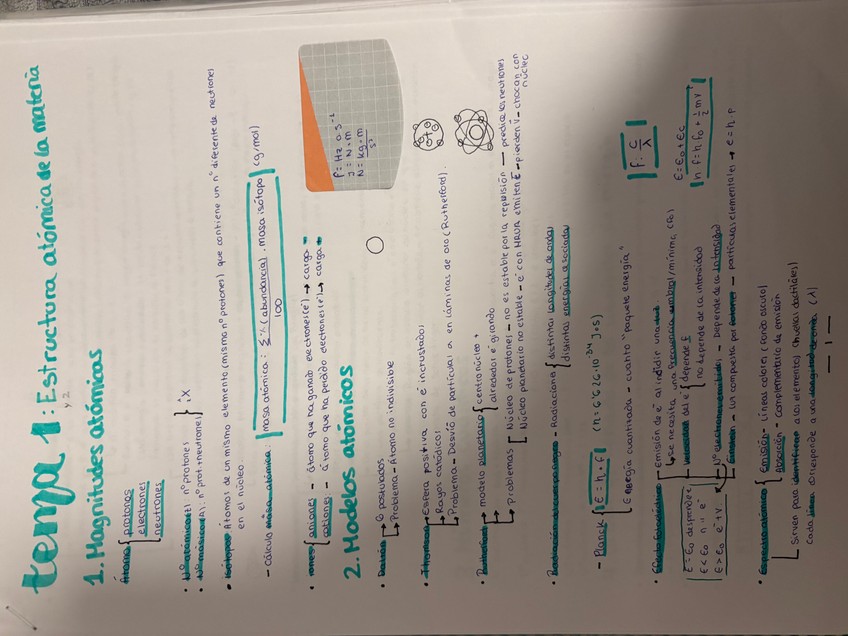 tema 1: Estructura atómica de la materia
y 2
1. Magnitudes atómicas
Átomo { protones
electrones
neutrones
• Nº atómico (Z): nº protones
• Nº másico (A): nº prot + neutrones } X
• Isótopos: Átomos de un mismo elemento (mismo nº protones) que contiene un nº diferente de neutrones
en el núcleo
- Cálculo masa atómica: | masa atómica = Σ % (abundancia) · masa isótopo / 100 | (g/mol)
• Iones { aniones - átomo que ha ganado electrones (e⁻) → carga -
cationes - átomo que ha perdido electrones (e⁻) → carga +
f = Hz o s⁻¹
J = N · m
N = kg · m / s²
2. Modelos atómicos
• Dalton → 6 postulados
→ Problema - Átomo no indivisible
• Thomson → Esfera positiva con e⁻ incrustados
→ Rayos catódicos
→ Problema - Desvío de partículas α en láminas de oro (Rutherford).
• Rutherford → modelo planetario { centro núcleo +
alrededor e⁻ girando
→ Problemas [ Núcleo de protones - no es estable por la repulsión — predice los neutrones
Núcleo planetario no estable - e⁻ con MRUA emiten E - pierden v - chocan con
núcleo
- Radiaciones { distintas longitudes de onda
distintas energías asociadas
- Planck { | E = h · f | (h = 6'626 · 10⁻³⁴ J · s)
Energía cuantizada - cuanto "paquete energía"
• Efecto fotoeléctrico - Emisión de e⁻ al incidir una luz
→ se necesita una frecuencia umbral/mínima (f₀)
| f = c / λ |
del e⁻ { depende f
no depende de la intensidad
E = E₀ + Ec
| h f = h f₀ + ½ m v² |
Nº electrones emitidos - Depende de la intensidad
- luz compuesta por fotones - partículas elementales → E = h · f
E = E₀ desprende e⁻
E < E₀ n
E > E₀ e⁻ + v
• Espectro atómico { Emisión - Líneas colores (fondo oscuro)
Absorción - Complementario de emisión
Sirven para identificar a los elementos (huellas dactilares)
cada línea corresponde a una longitud de onda (λ)
- 1 -